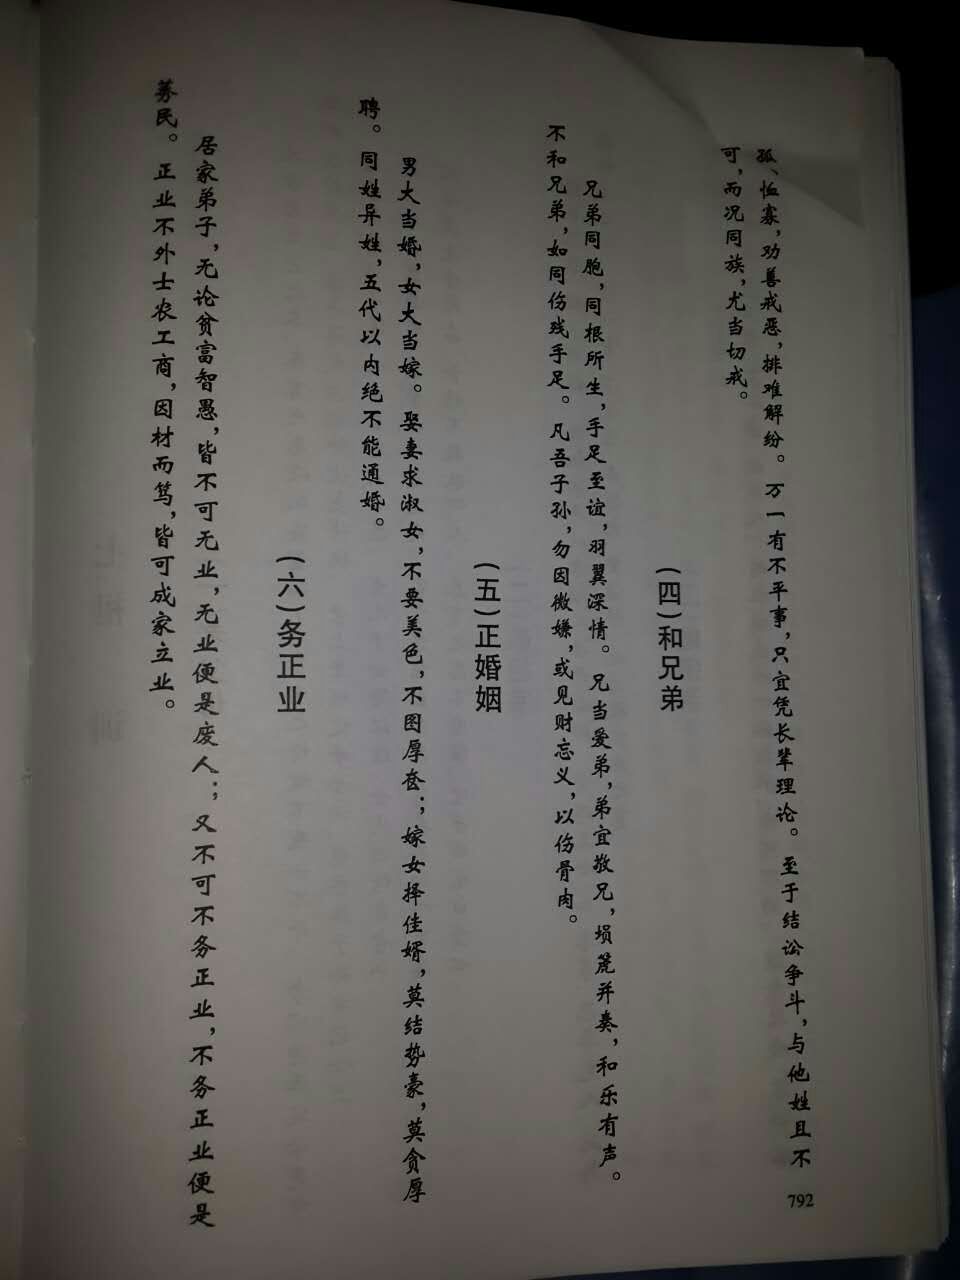 孤、恤寡，劝善戒恶，排难解纷。万一有不平事，只宜凭长辈理论。至于结讼争斗，与他姓且不
可，而况同族，尤当切戒。
(四)和兄弟
兄弟同胞，同根所生，手足至谊，羽翼深情。兄当爱弟，弟宜敬兄，埙篪并奏，和乐有声。
不和兄弟，如同伤残手足。凡吾子孙，勿因微嫌，或见财忘义，以伤骨肉。
(五)正婚姻
男大当婚，女大当嫁。娶妻求淑女，不要美色，不图厚奁；嫁女择佳婿，莫结势豪，莫贪厚
聘。同姓异姓，五代以内绝不能通婚。
(六)务正业
居家弟子，无论贫富智愚，皆不可无业，无业便是废人；又不可不务正业，不务正业便是
莠民。正业不外士农工商，因材而笃，皆可成家立业。
792